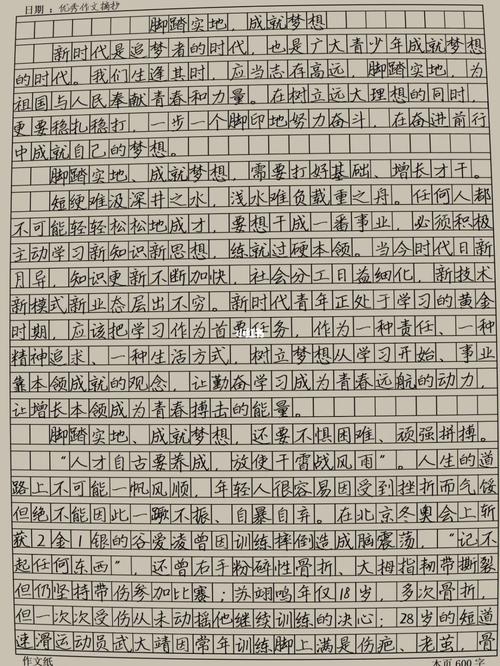 日期：优秀作文摘抄
脚踏实地，成就梦想
新时代是追梦者的时代，也是广大青少年成就梦想
的时代。我们生逢其时，应当志存高远，脚踏实地，为
祖国与人民奉献青春和力量。在树立远大理想的同时，
更要稳扎稳打，一步一个脚印地努力奋斗，在奋进前行
中成就自己的梦想。
脚踏实地、成就梦想，需要打好基础、增长才干。
短绠难汲深井之水，浅水难负载重之舟。任何人都
不可能轻轻松松地成才，要想干成一番事业，必须积极
主动学习新知识新思想，练就过硬本领。当今时代日新
月异，知识更新不断加快，社会分工日益细化，新技术
新模式新业态层出不穷。新时代青年正处于学习的黄金
时期，应该把学习作为首要任务，作为一种责任、一种
精神追求、一种生活方式，树立梦想从学习开始、事业
靠本领成就的观念，让勤奋学习成为青春远航的动力，
让增长本领成为青春搏击的能量。
脚踏实地、成就梦想，还要不惧困难、顽强拼搏。
“人才自古要养成，放使干霄战风雨”。人生的道
路上不可能一帆风顺，年轻人很容易因受到挫折而气馁
但绝不能因此一蹶不振、自暴自弃。在北京冬奥会上斩
获2金1银的谷爱凌曾因训练摔倒造成脑震荡，“记不
起任何东西”，还曾右手粉碎性骨折、大拇指韧带撕裂
但仍坚持带伤参加比赛；苏翊鸣年仅18岁，多次骨折，
但一次次受伤从未动摇他继续训练的决心；28岁的短道
速滑运动员武大靖因常年训练脚上满是伤疤、老茧，骨
作文纸
本页600字